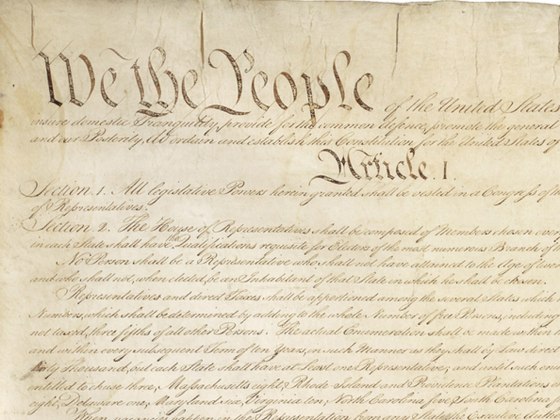 We the People of the United States
insure domestic Tranquility, provide for the common defence, promote the general
and our Posterity, do ordain and establish this Constitution for the United States of
Article. I.
Section. 1. All legislative Powers herein granted shall be vested in a Congress of
of Representatives.
Section. 2. The House of Representatives shall be composed of Members chosen every
in each State shall have the Qualifications requisite for Electors of the most numerous Branch of the
No Person shall be a Representative who shall not have attained to the Age of twenty
and who shall not, when elected, be an Inhabitant of that State in which he shall be chosen.
Representatives and direct Taxes shall be apportioned among the several States which
Numbers, which shall be determined by adding to the whole Number of free Persons, including
not taxed, three fifths of all other Persons. The actual Enumeration shall be made within
and within every subsequent Term of ten Years, in such Manner as they shall by Law direct
thirty Thousand, but each State shall have at Least one Representative; and until such
entitled to chuse three, Massachusetts eight, Rhode Island and Providence Plantations
eight, Delaware one, Maryland six, Virginia ten, North Carolina five, South Carolina five
When vacancies happen in the Representation from any State, the Executive